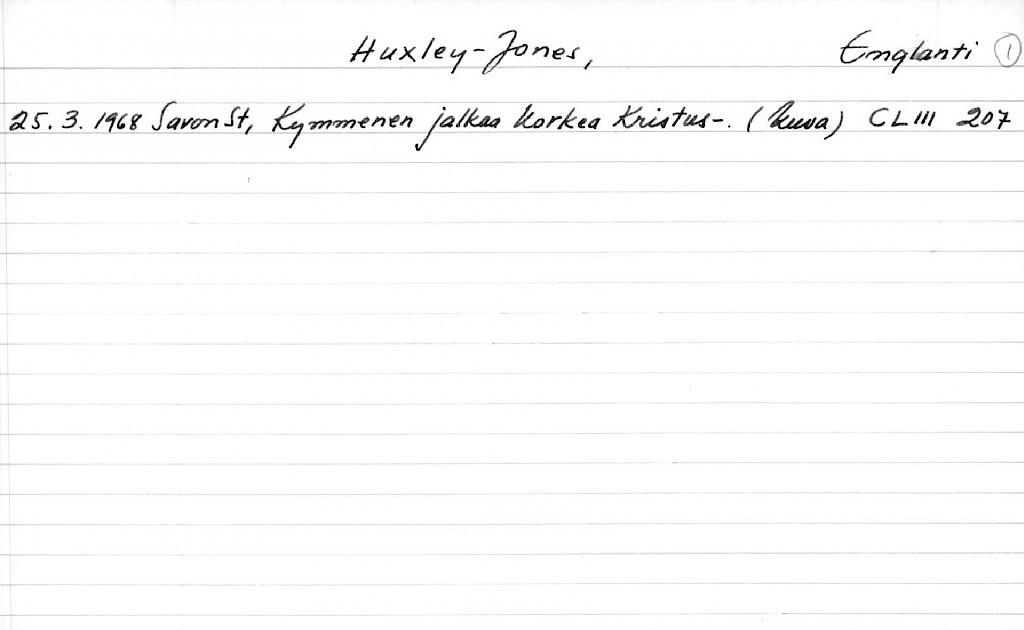 Huxley-Jones, Englanti 1
25.3.1968 Savon St, Kymmenen jalkaa korkea Kristus-. (kuva) CLIII 207